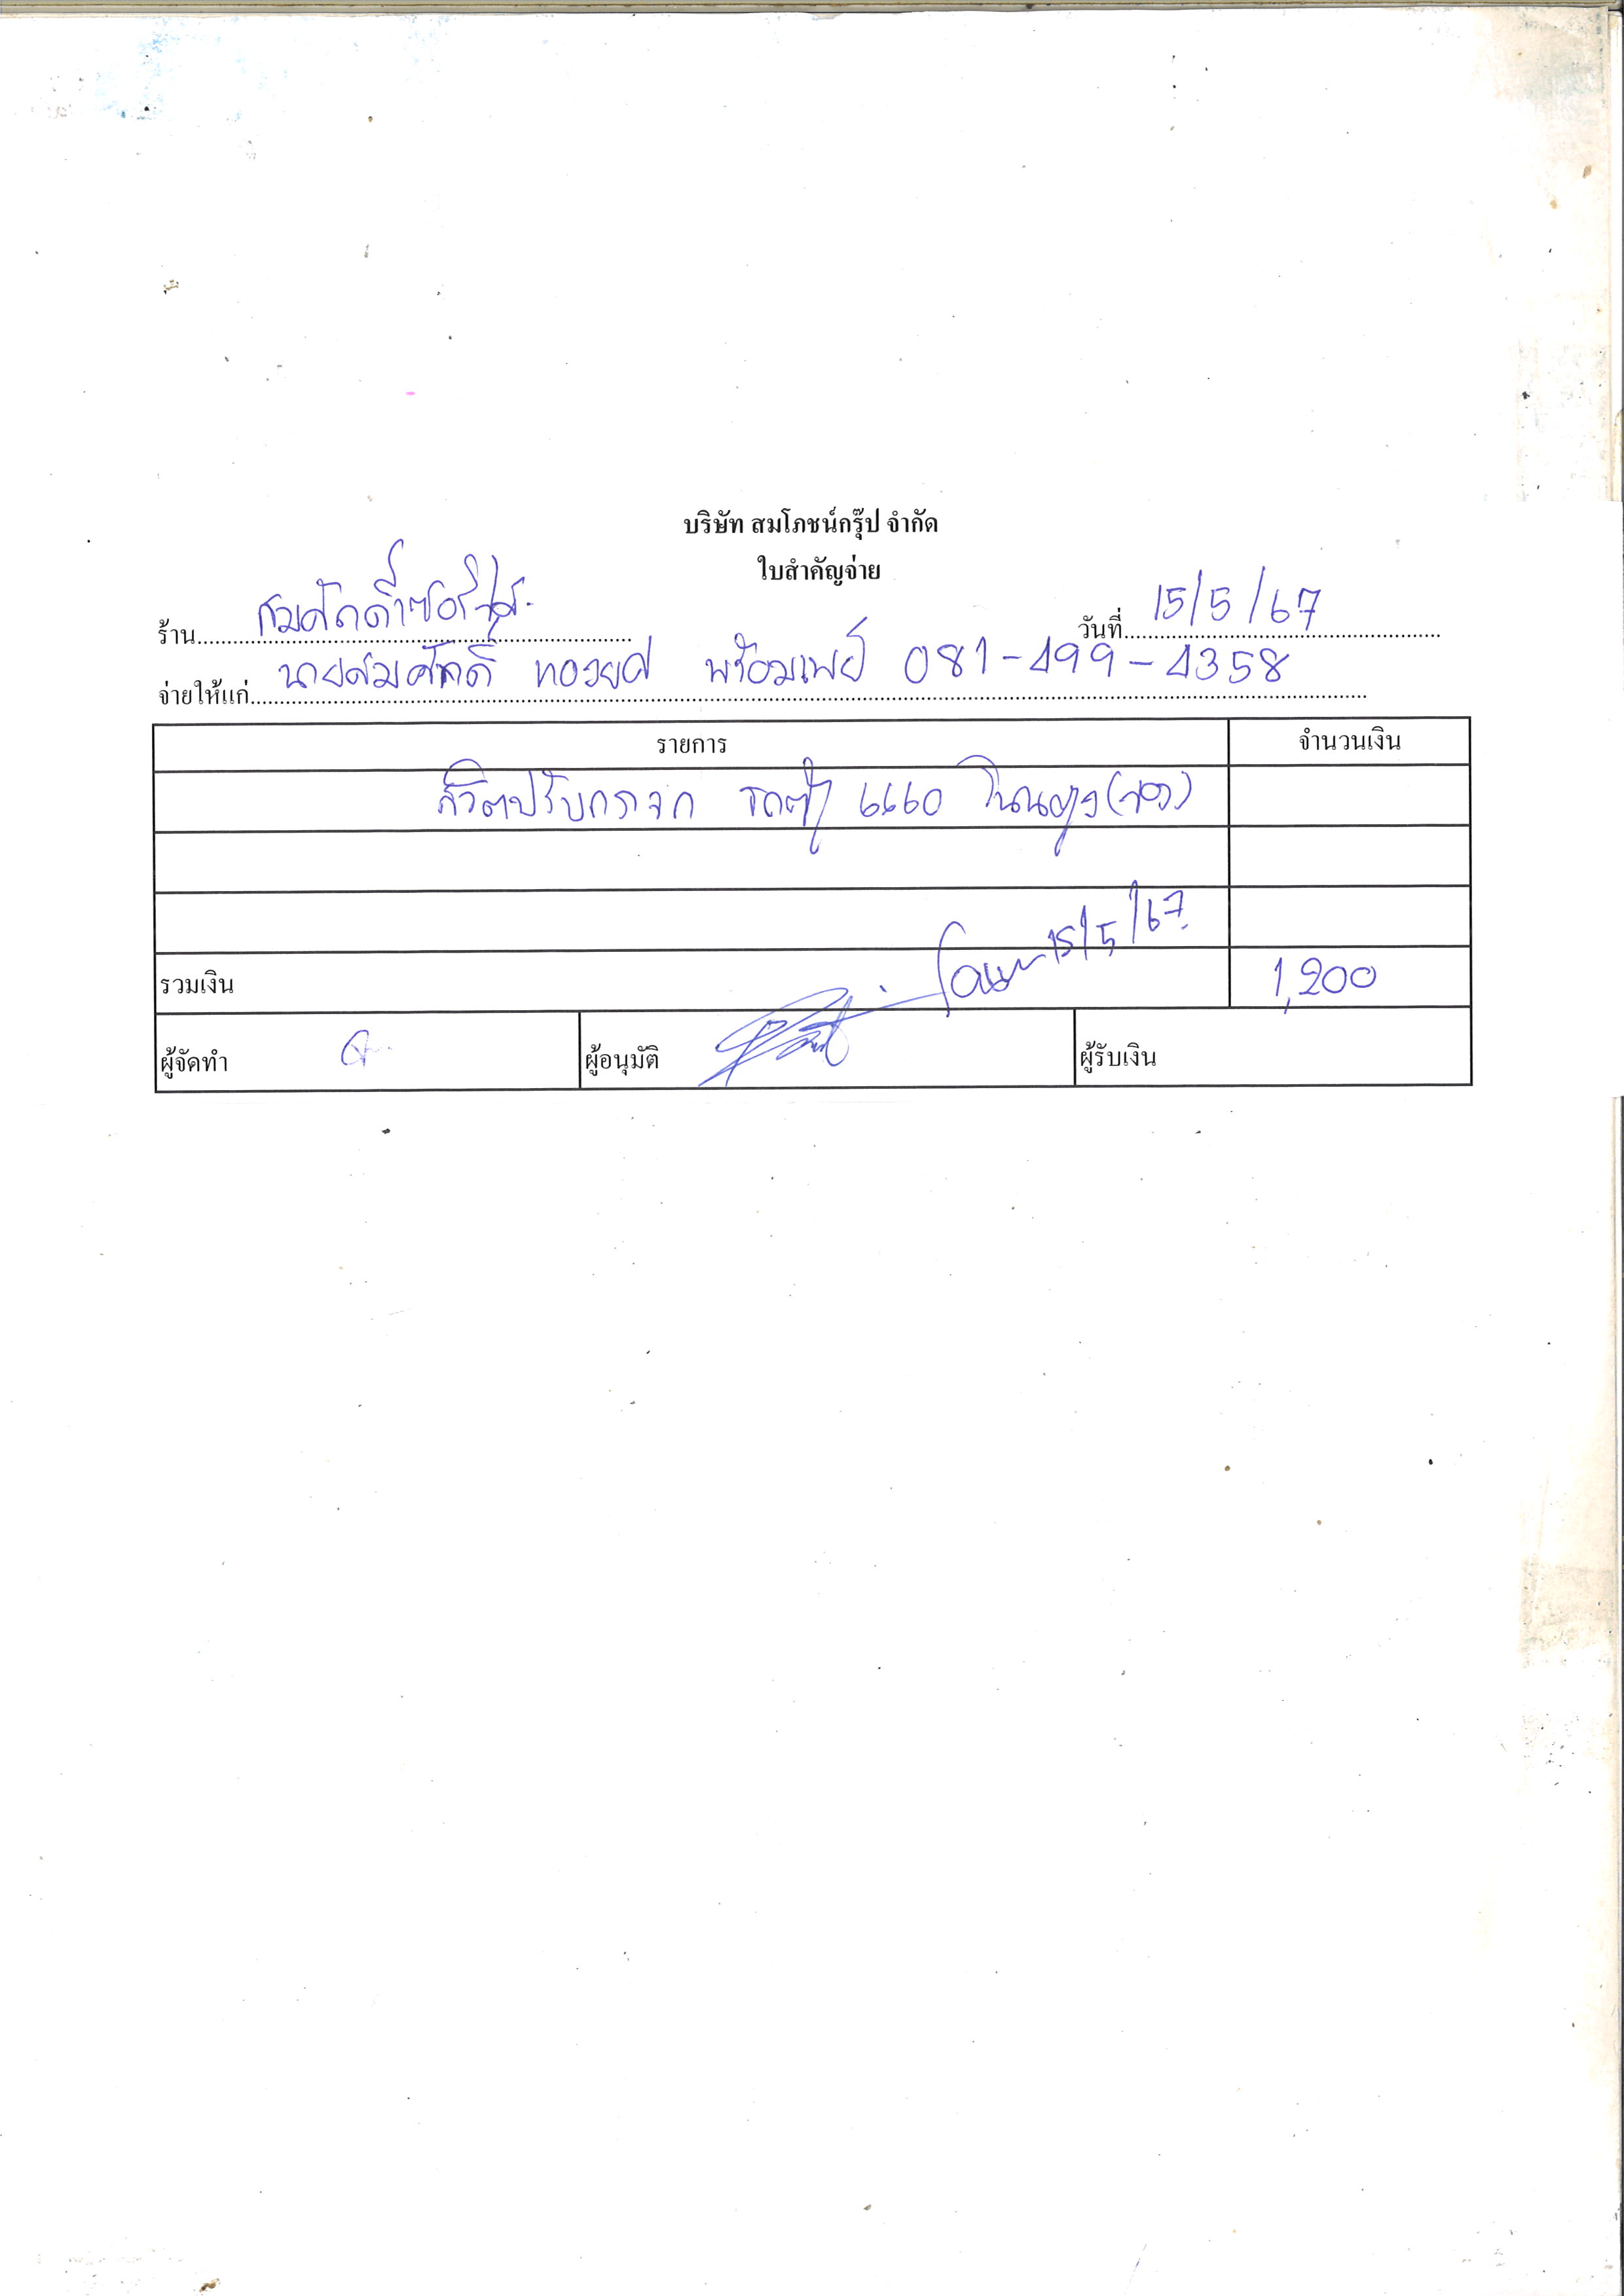 บริษัท สมโภชน์กรุ๊ป จำกัด
ใบสำคัญจ่าย
ร้าน สมศักดิ์เซอร์วิส วันที่ 15/5/67
จ่ายให้แก่ นายสมศักดิ์ ทองยศ พร้อมเพย์ 081-499-4358
รายการ จำนวนเงิน
สวิตปรับกระจก รถตู้ 6660
15/5/67
รวมเงิน 1,200
ผู้จัดทำ ผู้อนุมัติ ผู้รับเงิน